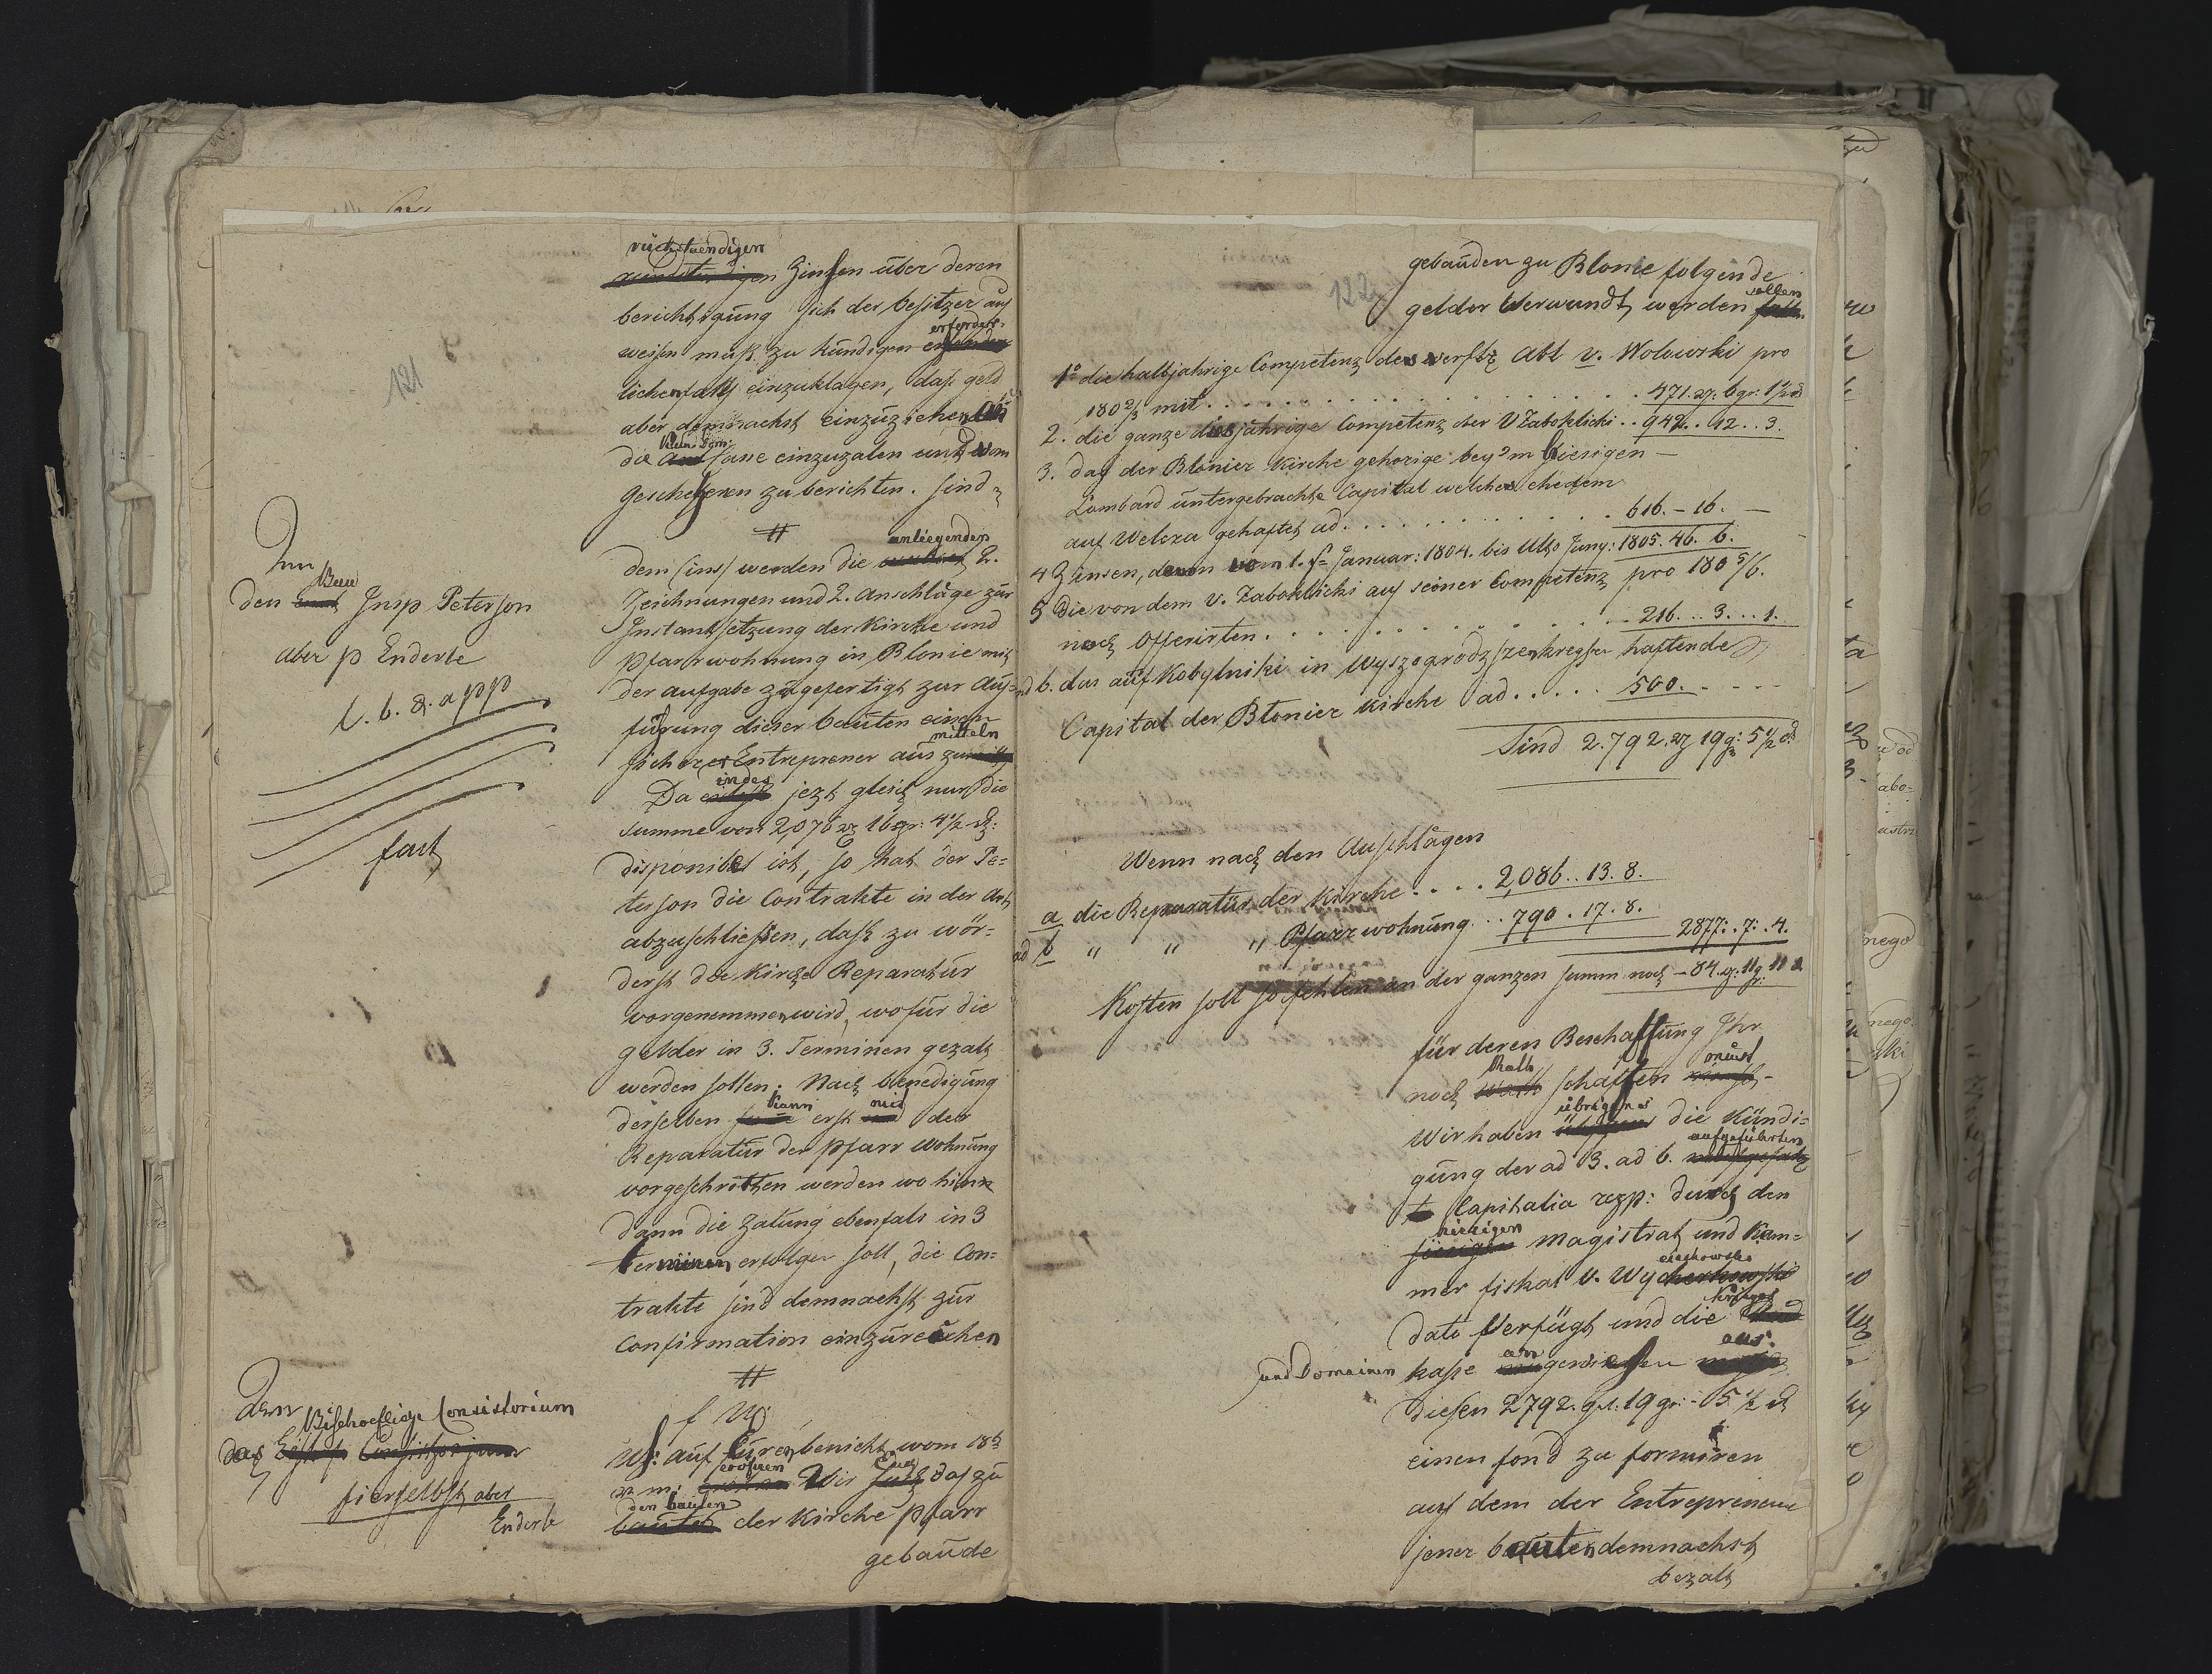 121
rückstaendigen
Zinsen über deren
berichtigung sich der besitzer aus
weisen muß zu kündigen erforder-
lichenfalls einzuklagen, das geld
aber demnachst einzuziehen
die einzuzalen und vom
Geschehenen zu berichten. sind
#
An
den Bau Insp Peterson
aber p Enderle
l. b. & app
fact
anliegenden
dem (ins) werden die 2.
Zeichnungen und 2. Anschläge zur
Instantsetzung der Kirche und
Pfarrwohnung in Blonie mit
der aufgabe zugefertigt zur Aus-
führung dieser bauten einen
sicheren Entreprener aus zu mitteln
Da indes jezt gleich nur die
Summe von 2,076 rz 16 gr: 4 1/2 d:
disponibel ist, so hat der Pe-
terson die Contrakte in der Art
abzuschließen, daß zu vör-
derst die Kirche Reparatur
vorgenommen wird, wofür die
gelder in 3. Terminen gezalt
werden sollen; Nach beendigung
derselben kann erst mit der
Reparatur der Pfarr Wohnung
vorgeschritten werden wo hinn
dann die Zalung ebenfals in 3
terminen erfolgen soll, die Con-
trakte sind demnachst zur
Confirmation einzureichen
#
Dem
Bischoefliche Consistorium
das
hierselbst aber
Enderle
f W.
auf Euren bericht vom 18t
v m: eroffnen Wir Euch daß zu
den bauten
der Kirche Pfarr
gebaude
122
gebauden zu Blonie folgende
gelder Verwandt werden sollen
1° die halbjahrige Competenz des verstz Abt v. Wolowski pro
180 2/3 mit . . . 471. rz: 6 gr: 1 1/2 d
2. die ganze diesjährige Competenz der V Zaboklicki . . 942. . 12. . 3.
3. das der Blonier Kirche gehorige bey'm hiesigen —
Lombard untergebrachte Capital welches ehedem
auf Welcza gehaftet ad . . . 616. – 16. —
4 Zinsen, davon vom 1. Januar: 1804. bis Ulto Juny: 1805. 46. 6.
5 Die von dem v. Zaboklicki aus seiner Competenz pro 180 5/6.
noch Offerirten . . . 216. . . 3. . . 1.
6. das auf Kobylniki in Wyszegrodz haftende
Capital der Blonier Kirche ad . . . 500. - - -
Sind 2.792. rz 19 g: 5 1/2 d
Wenn nach den Anschlägen
a die Reparatur der Kirche . . . . 2,086. . 13. 8.
b " " " Pfarrwohnung . . 790 . 17. 8.
2877: . 7: . 4.
Kosten soll so fehlen an der ganzen Summ noch – 84. rz: 11 g:
für deren Beschaffung Ihr
noch Rath schaffen must
Wir haben übrigens die Kündi-
gung der ad 3. ad 6. aufgeführten
Capitalia resp: durch den
hiesigen magistrat und Kam-
mer fiskal v. Wyciechowski
dato Verfügt und die Krieges
und Domainen kasse angewiesen aus
diesen 2792. gul: 19 gr: - 5 1/2 d
einen fond zu formiren
aus dem der Entrepreneur
jener bauten demnachst
bezalt